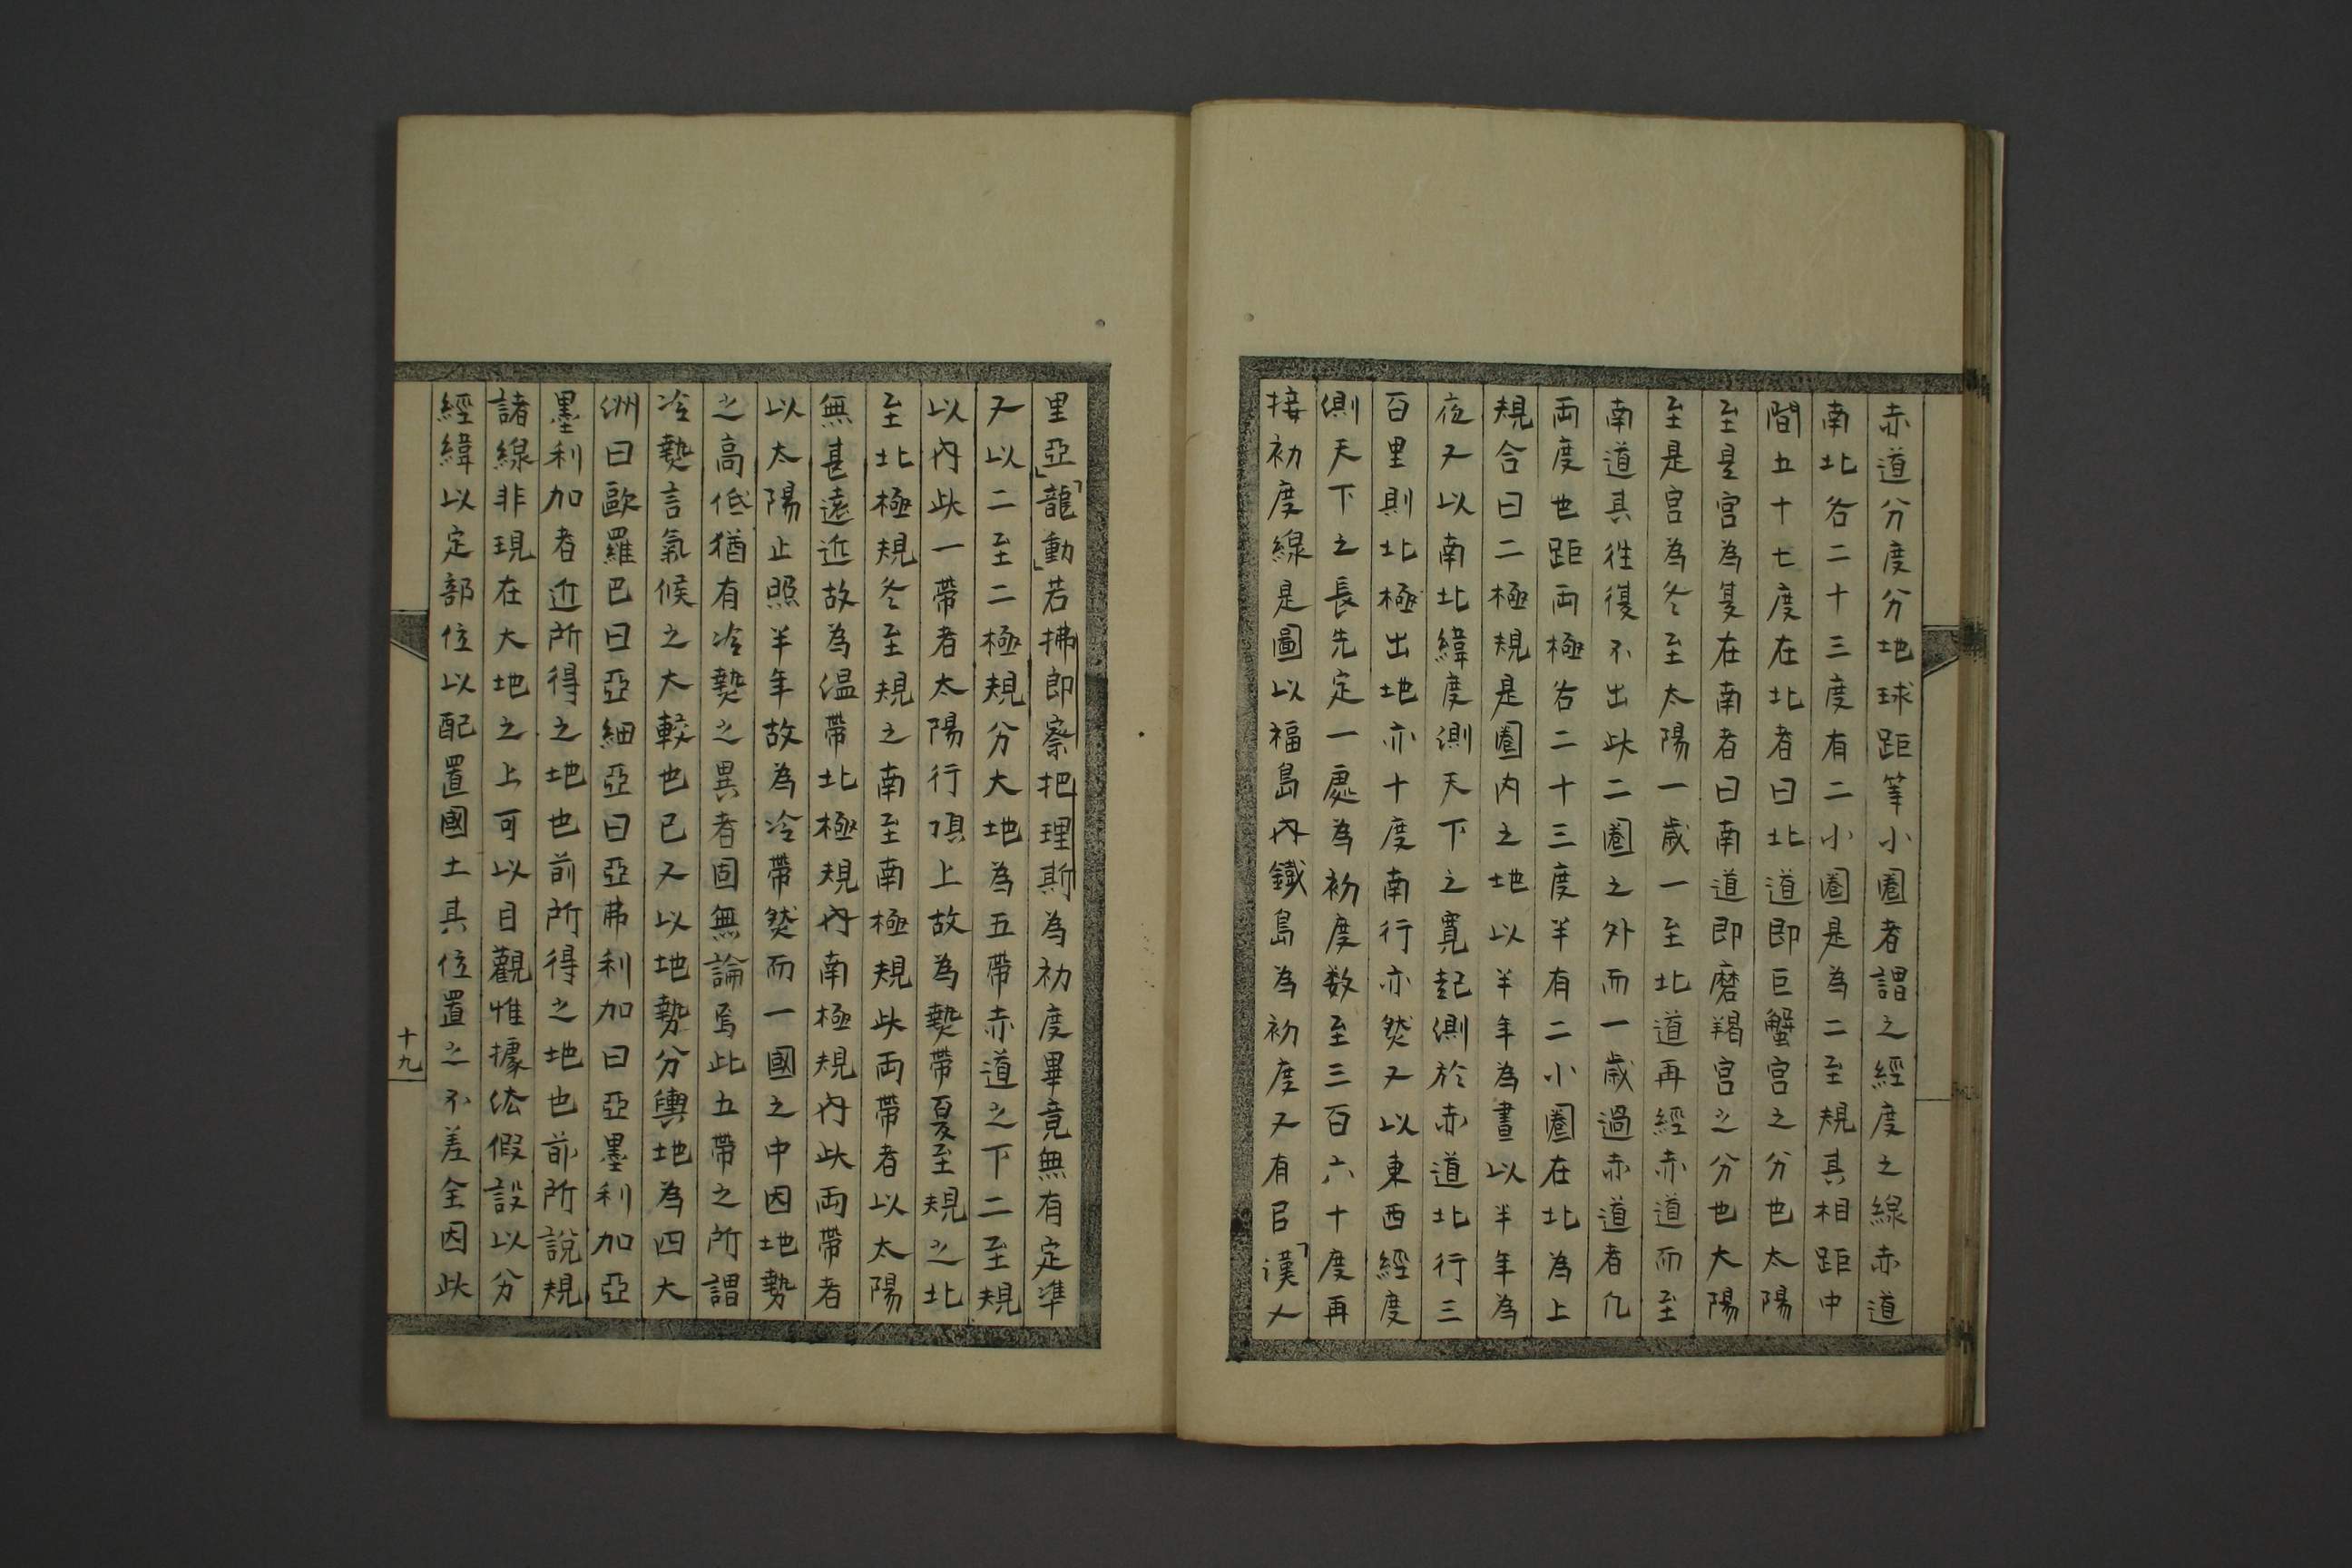 赤道分度分地球距等小圈者謂之經度之線赤道
南北各二十三度有二小圈是為二至規其相距中
間五十七度在北者曰北道即巨蟹宮之分也太陽
至是宮為夏在南者曰南道即磨羯宮之分也大陽
至是宮為冬至太陽一歲一至北道再經赤道而至
南道其往復不出此二圈之外而一歲過赤道者凡
両度也距両極各二十三度半有二小圈在北為上
規合曰二極規是圈內之地以半年為晝以半年為
夜又以南北緯度測天下之寬起測於赤道北行三
百里則北極出地亦十度南行亦然又以東西經度
測天下之長先定一處為初度数至三百六十度再
接初度線是圖以福島內鐵島為初度又有召「漢乂
里亞」「龍動」若拂郎察把理斯為初度畢竟無有定準
又以二至二極規分大地為五帶赤道之下二至規
以內此一帶者太陽行頂上故為熱帶夏至規之北
至北極規冬至規之南至南極規此両帶者以太陽
無甚遠近故為温帶北極規內南極規內此両帶者
以太陽止照半年故為冷帶然而一國之中因地勢
之高低猶有冷熱之異者固無論焉此五帶之所謂
冷熱言氣候之大較也已又以地勢分輿地為四大
洲曰歐羅巴曰亞細亞曰亞弗利加曰亞墨利加亞
墨利加者近所得之地也前所得之地也前所說規
諸線非現在大地之上可以目觀惟據㳒假設以分
經緯以定部位以配置國土其位置之不差全因此
十九